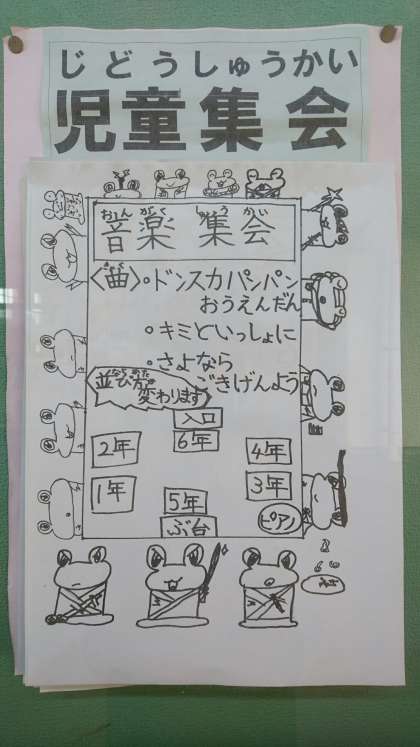 じどうしゅうかい
児童集会
音楽 集会
おんがく しゅうかい
<曲>。ドンスカパンパン
おうえんだん
。キミといっしょに
。さよなら
ごきげんよう
並び方
変わります
入口
6年
2年
4年
1年
3年
5年
ピアノ
ぶ台